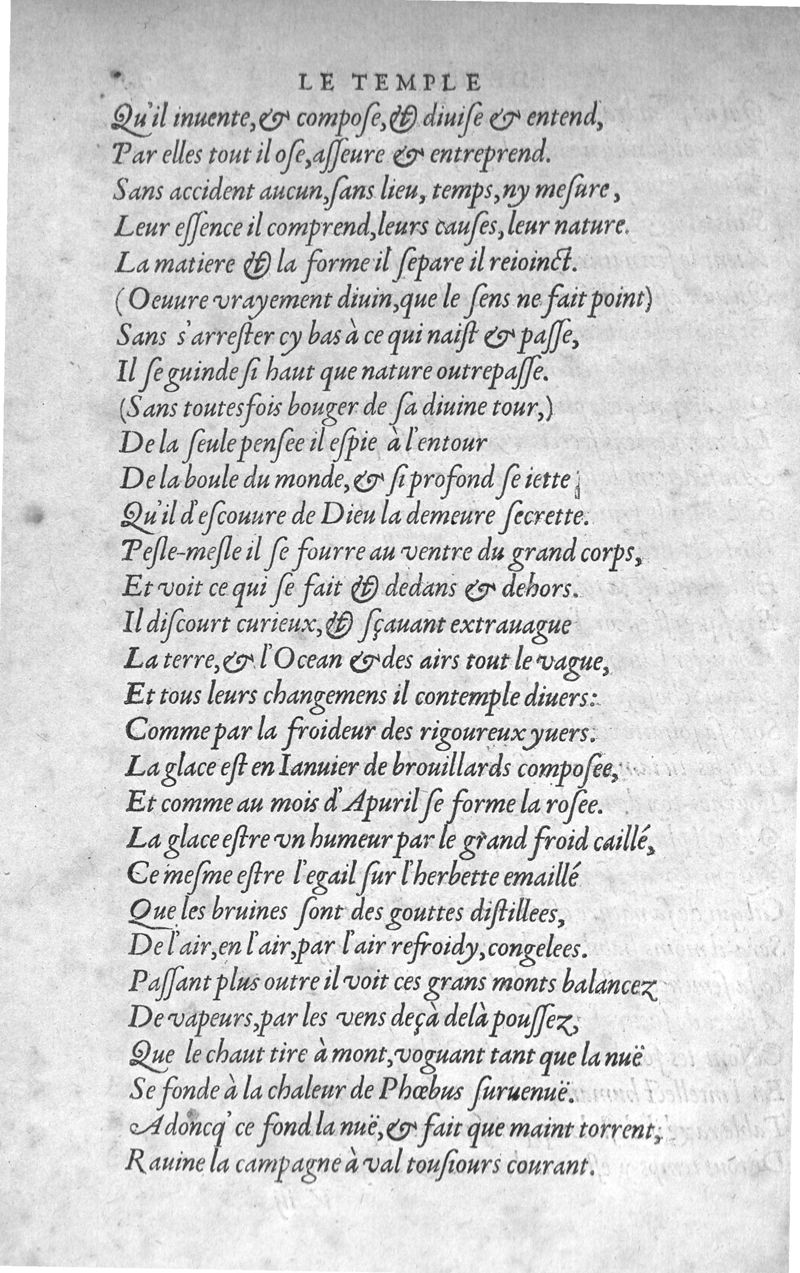 LE TEMPLE
Qu'il inuente, & compoſe, & diuiſe & entend,
Par elles tout il oſe, aſſeure & entreprend.
Sans accident aucun, ſans lieu, temps, ny meſure,
Leur eſſence il comprend, leurs cauſes, leur nature.
La matiere & la forme il ſepare il reioinct.
(Oeuure vrayement diuin, que le ſens ne fait point)
Sans s'arreſter cy bas à ce qui naiſt & paſſe,
Il ſe guinde ſi haut que nature outrepaſſe.
(Sans toutesfois bouger de ſa diuine tour,)
De la ſeule penſee il eſpie à l'entour
De la boule du monde, & ſi profond ſe iette;
Qu'il d'eſcouure de Dieu la demeure ſecrette.
Peſle-meſle il ſe fourre au ventre du grand corps,
Et voit ce qui ſe fait & dedans & dehors.
Il diſcourt curieux, & ſçauant extrauague
La terre, & l'Ocean & des airs tout le vague,
Et tous leurs changemens il contemple diuers:
Comme par la froideur des rigoureux yuers:
La glace eſt en Ianuier de brouillards compoſee,
Et comme au mois d'Apuril ſe forme la roſee.
La glace eſtre vn humeur par le grand froid caillé,
Ce meſme eſtre l'egail ſur l'herbette emaillé
Que les bruines ſont des gouttes diſtillees,
De l'air, en l'air, par l'air refroidy, congelees.
Paſſant plus outre il voit ces grans monts balancez
De vapeurs, par les vens deçà delà pouſſez,
Que le chaut tire à mont, voguant tant que la nuë
Se fonde à la chaleur de Phœbus ſuruenuë.
Adoncq' ce fond la nuë, & fait que maint torrent,
Rauine la campagne à val touſiours courant.